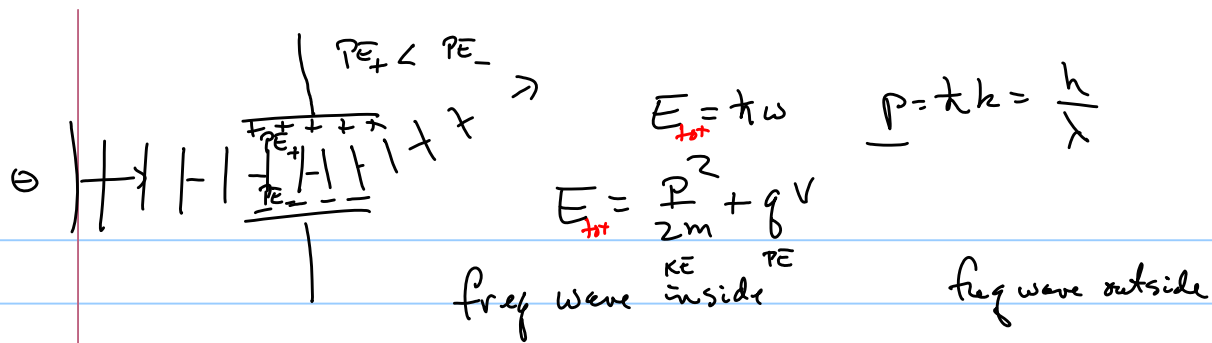 PE₊ < PE₋
+ + + + +
PE₊
⊖
PE₋
− − − −
E_tot = ħω
p = ħk = h/λ
E_tot = p²/2m + qV
KE PE
freq wave inside
freq wave outside